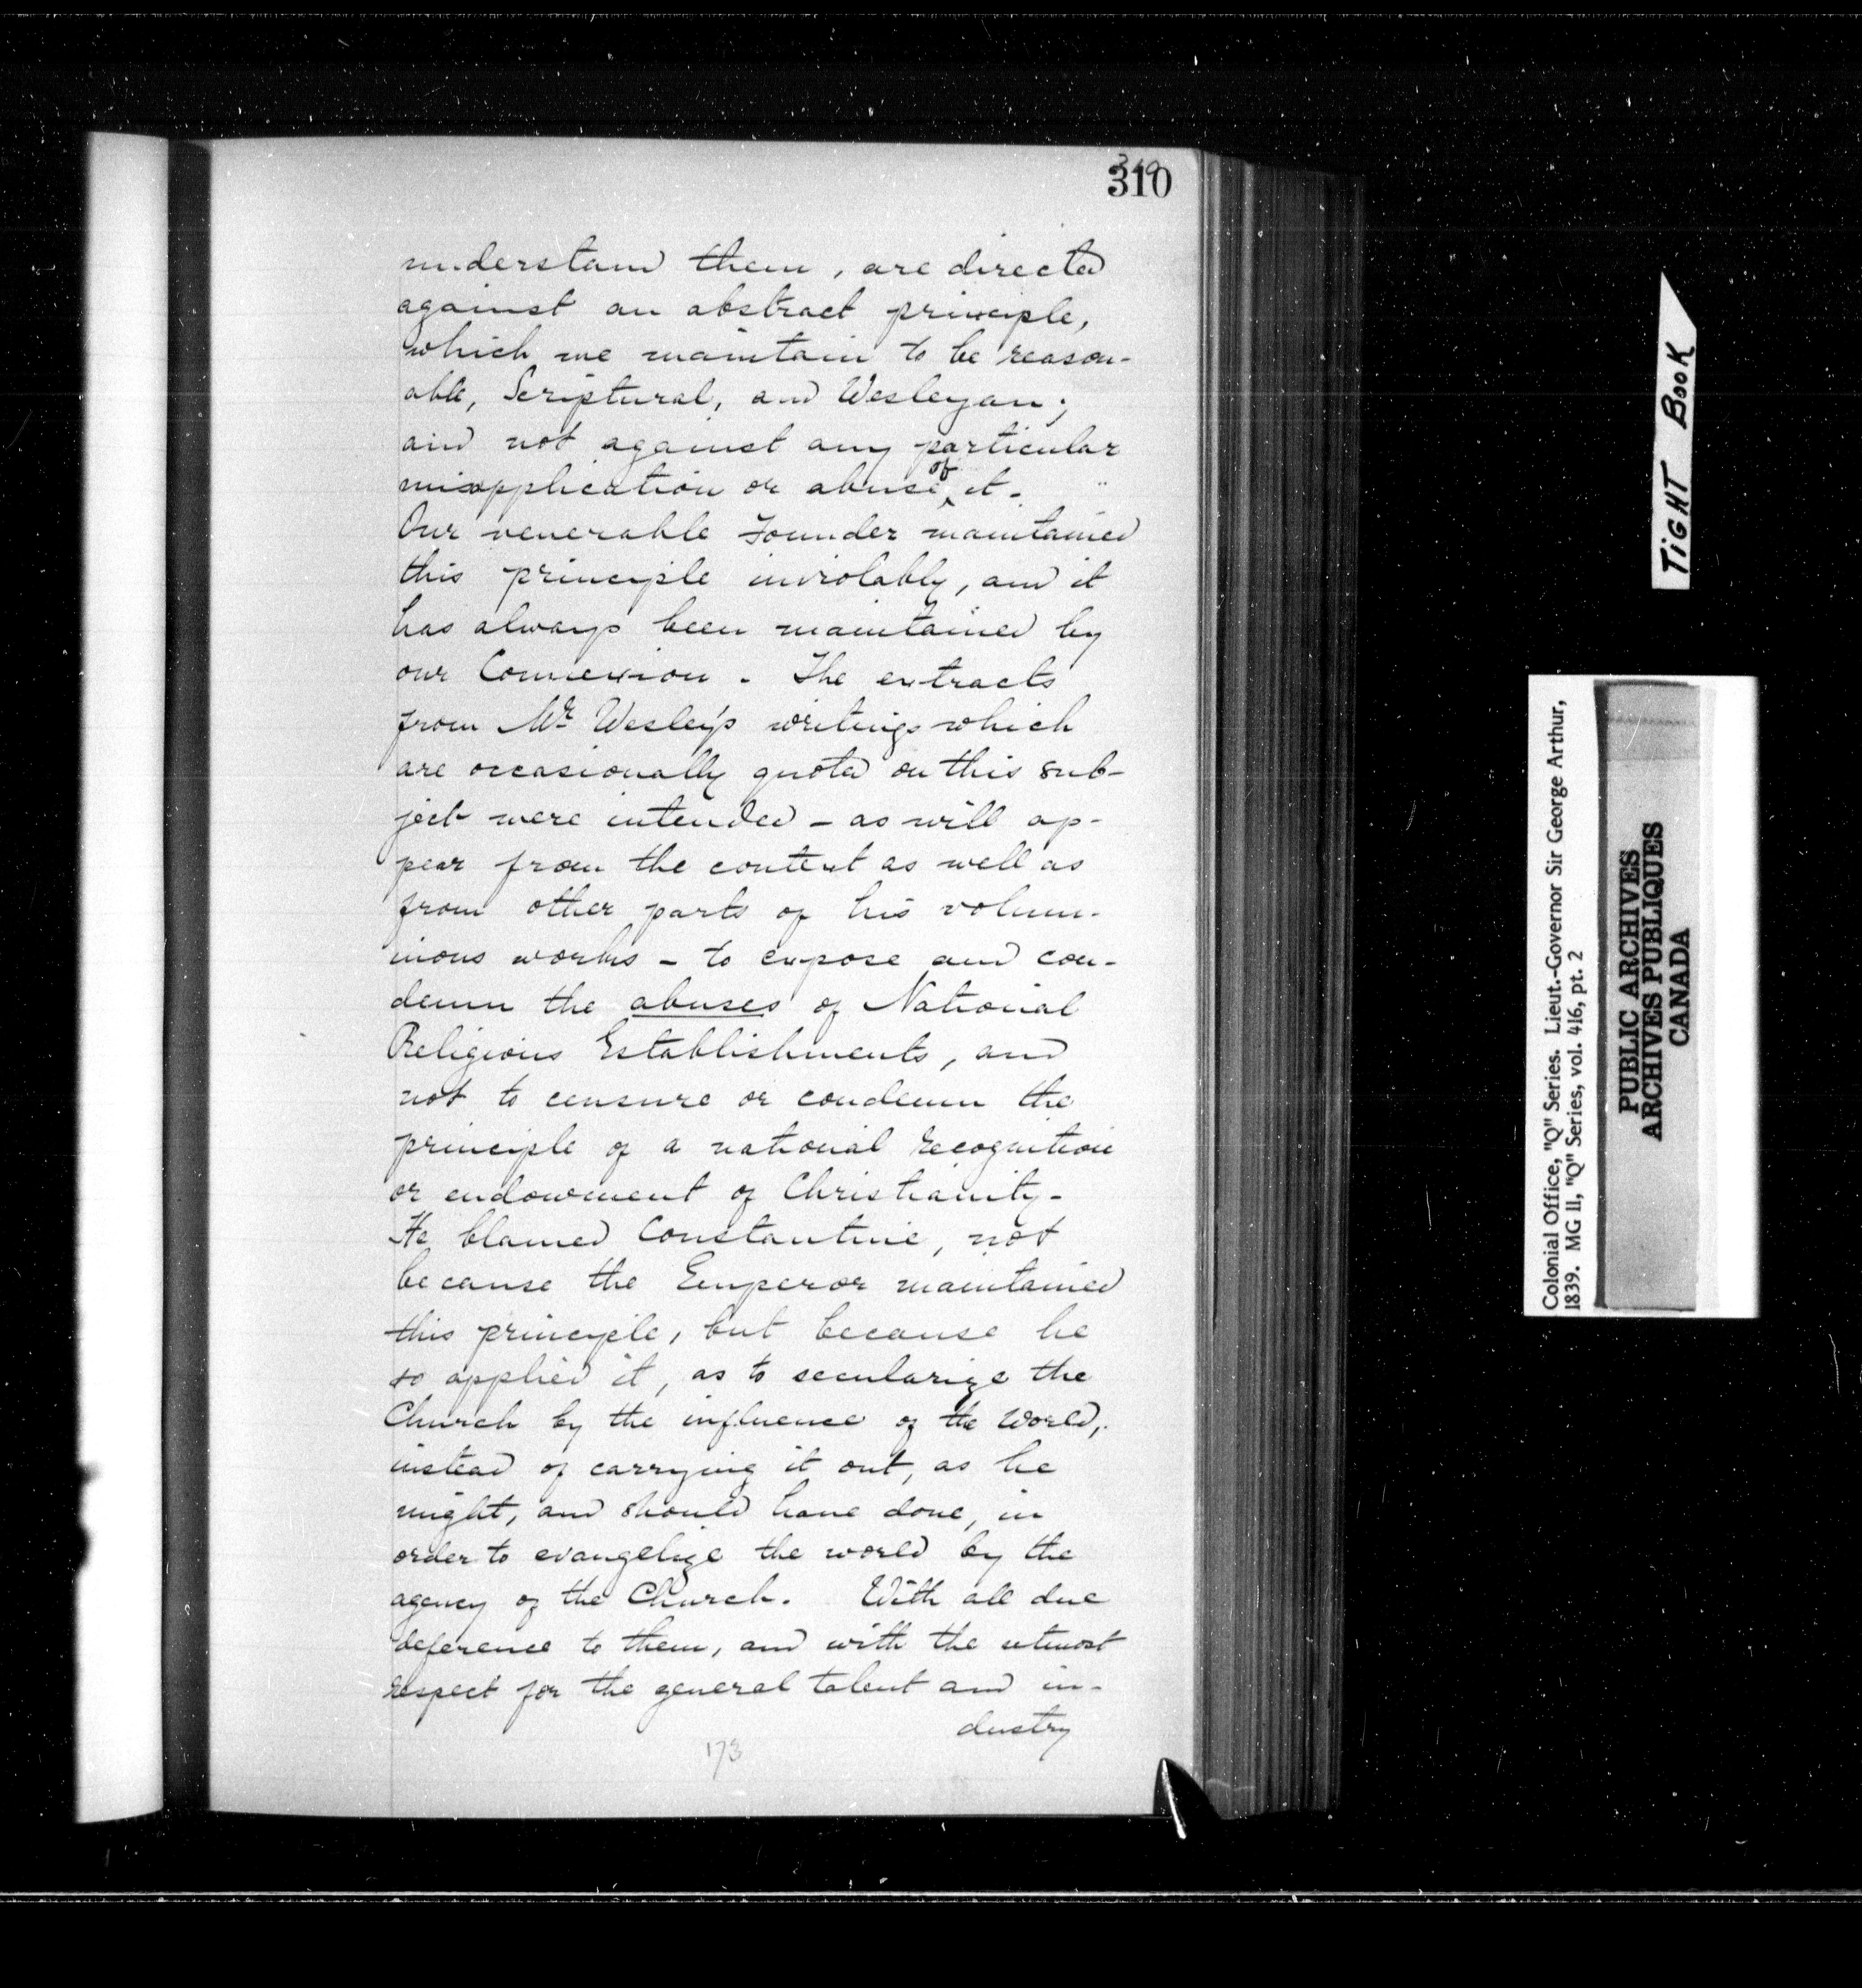 310
understand them, are directed
against an abstract principle,
which we maintain to be reason-
able, Scriptural, and Wesleyan;
and not against any particular
misapplication or abuse of it.
Our venerable Founder maintained
this principle inviolably, and it
has always been maintained by
our Connexion. The extracts
from Mr Wesley's writings which
are occasionally quoted on this sub-
ject were intended - as will ap-
pear from the context as well as
from other parts of his volum-
inous works - to expose and con-
demn the abuses of National
Religious Establishments, and
not to censure or condemn the
principle of a national recognition
or endowment of Christianity -
He blamed Constantine, not
because the Emperor maintained
this principle, but because he
so applied it, as to secularize the
Church by the influence of the World,
instead of carrying it out, as he
might, and should have done, in
order to evangelize the world by the
agency of the Church. With all due
deference to them, and with the utmost
respect for the general talent and in-
dustry
173
TIGHT BOOK
Colonial Office, "Q" Series. Lieut.-Governor Sir George Arthur,
1839. MG 11, "Q" Series, vol. 416, pt. 2
PUBLIC ARCHIVES
ARCHIVES PUBLIQUES
CANADA